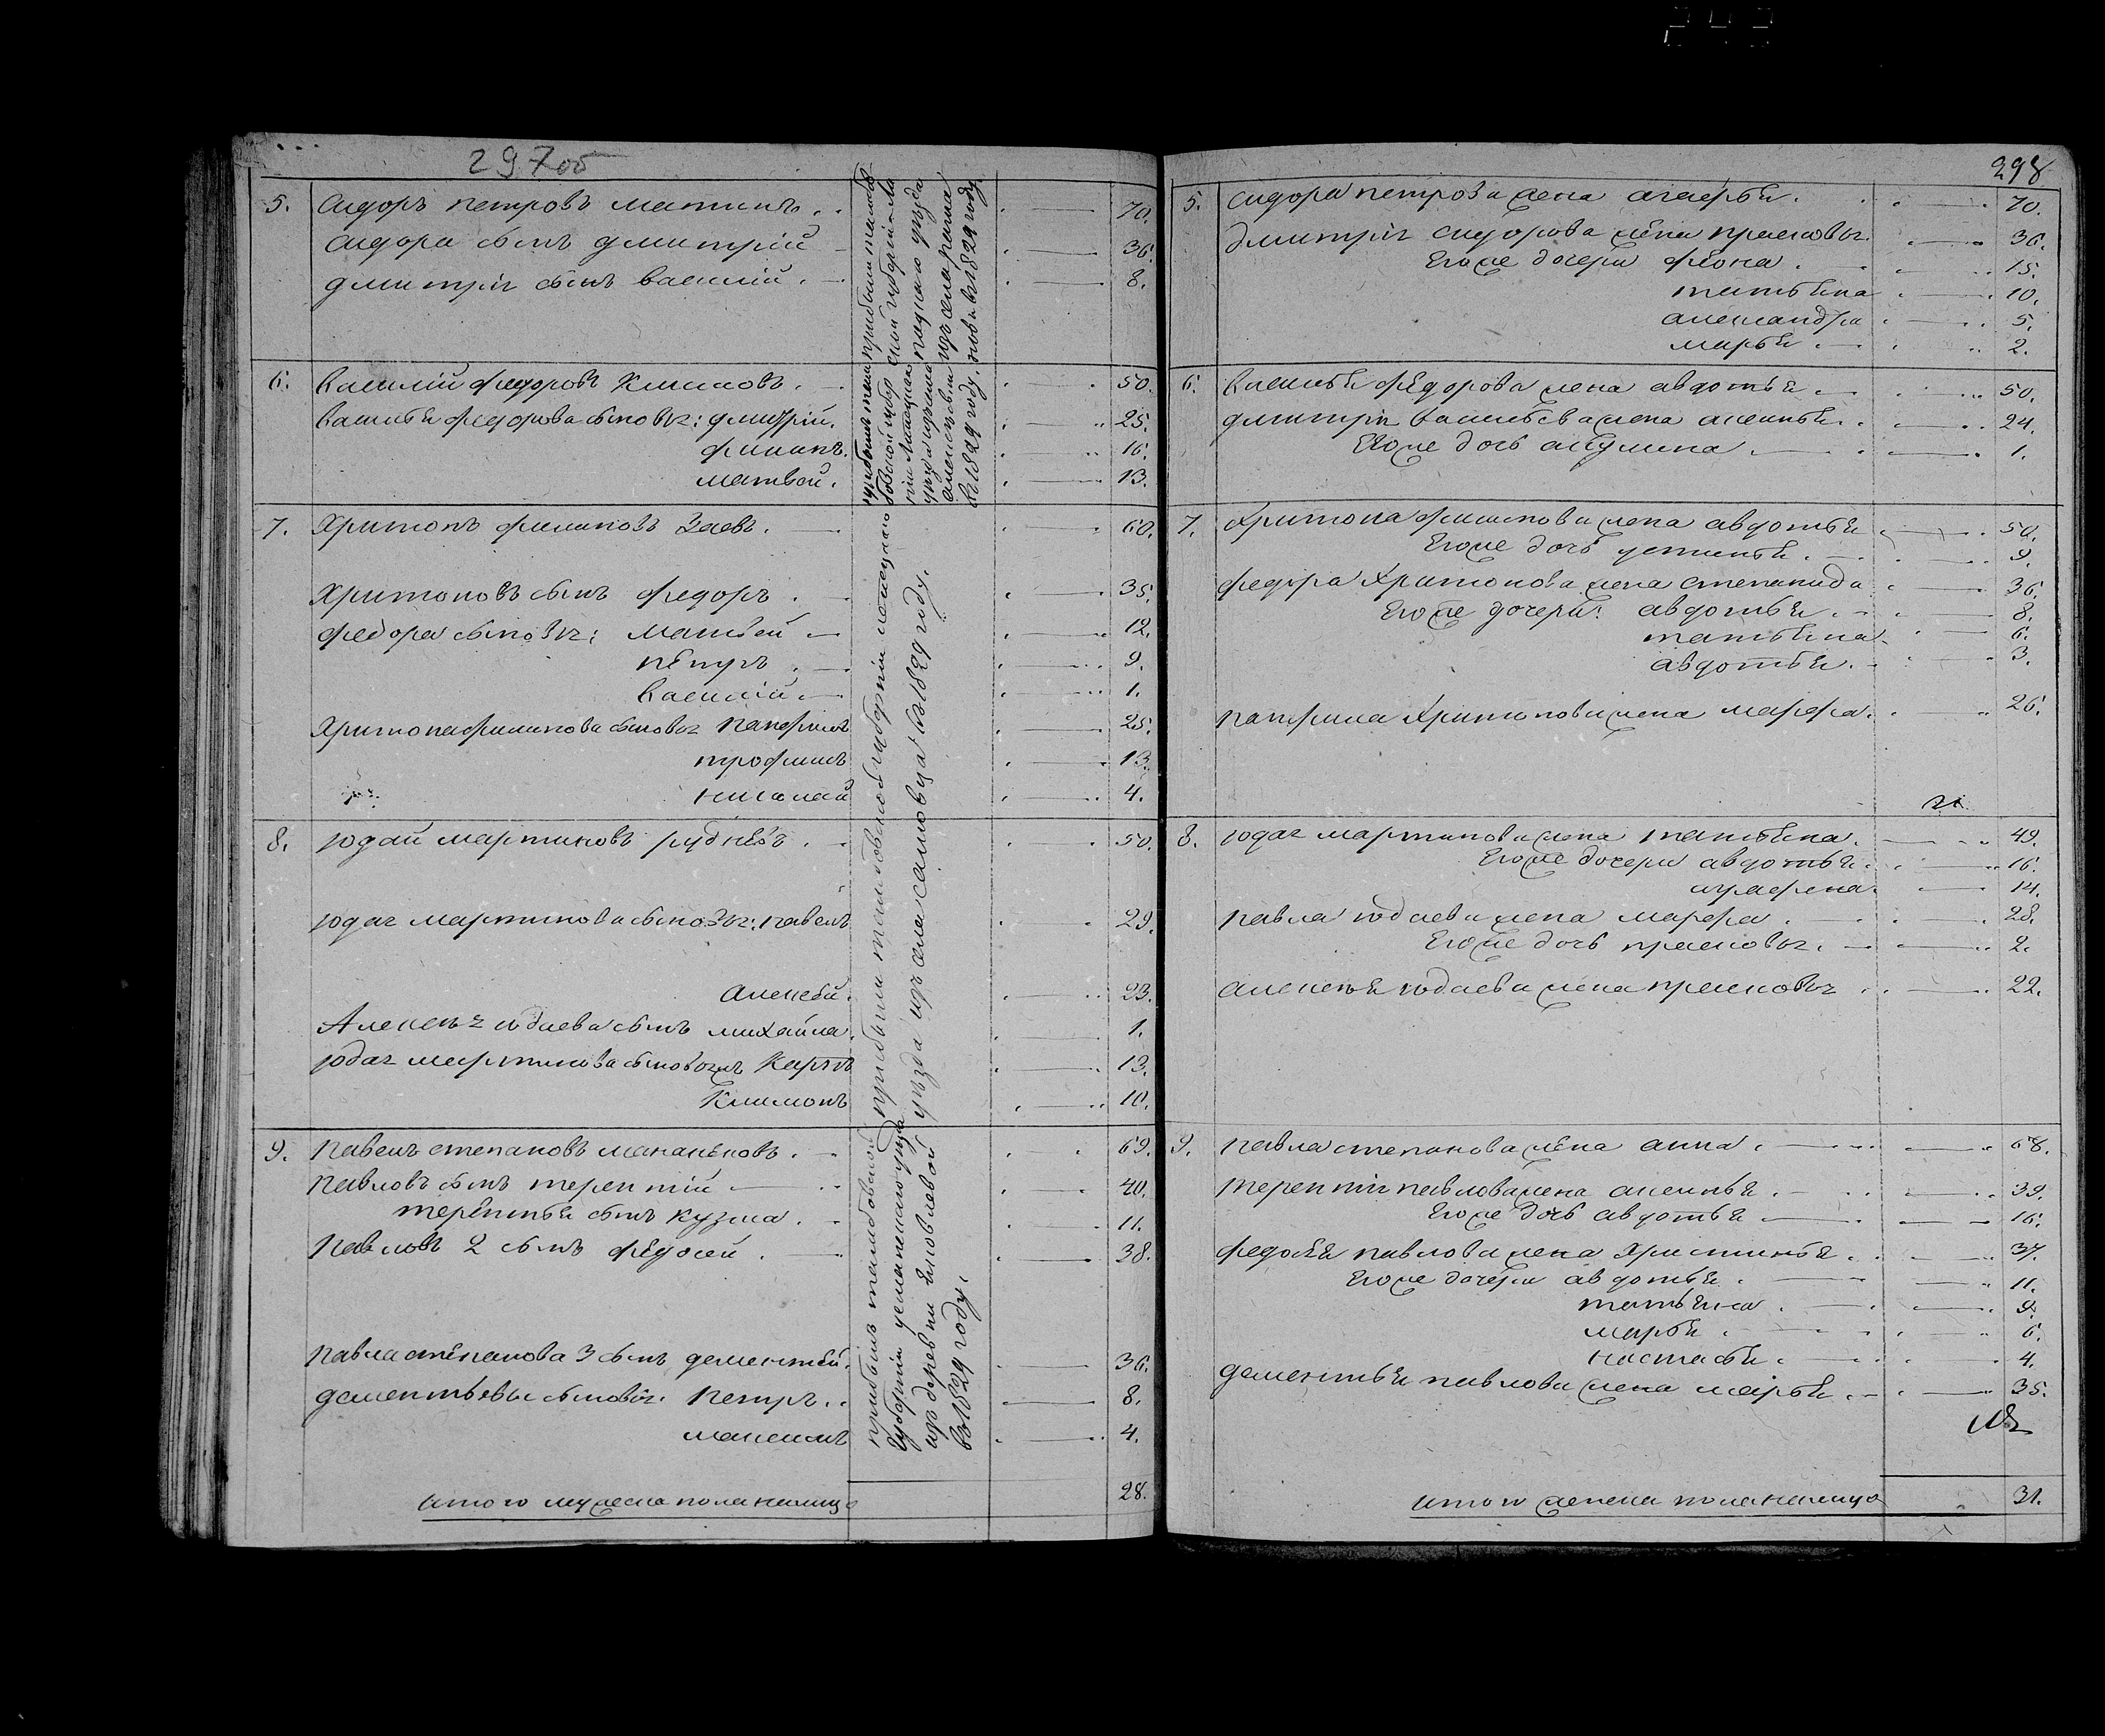 297об
5. Сидоръ петровъ матинъ. 70.
Сидора сынъ дмитрій 36.
дмитрія сынъ василій. 8.
6. Василій федоровъ Климовъ. 50.
Василья федорова сыновья: дмитрій. 25.
филипъ. 16.
матвей. 13.
7. Харитонъ филиповъ Заевъ. 60.
Харитоновъ сынъ федоръ. 35.
федора сыновья: матвей 12.
петръ. 9.
василій 1.
Харитона филипова сыновья Панфилъ 25.
трофимъ 13.
николай 4.
8. юдай мартиновъ рудневъ. 50.
юдая мартинова сыновья: павелъ 29.
Алексей. 23.
Алексея юдаева сынъ михайла. 1.
юдая мартинова сыновья Карпъ 13.
Климонъ 10.
9. Павелъ степановъ мананковъ. 69.
Павловъ сынъ терентій 40.
терентья сынъ кузма. 11.
Павловъ 2 сынъ федосей. 38.
Павла степанова 3 сынъ дементей. 36.
дементьевы сыновья. Петръ. 8.
максимъ 4.
итого мужеска пола налицо 28.
прибыли тамбовской губерніи
уезда изъ села въ 1829 году.
прибылъ тамбовской
губерніи усманскаго уезда
изъ деревни
въ 1829 году.
298
5. Сидора петрова жена агафья. 70.
дмитрія сидорова жена прасковья. 36.
Его же дочери фіона. 15.
татьяна 10.
александра 5.
марья. 2.
6. Василья федорова жена авдотья. 50.
дмитрія васильева жена аксинья. 24.
Его же дочь акулина 1.
7. Харитона филипова жена авдотья 50.
Его же дочь устинья. 9.
федора Харитонова жена степанида 36.
Его же дочери: авдотья. 8.
татьяна. 6.
авдотья. 3.
панфила Харитонова жена марфа. 26.
8. юдая мартинова жена татьяна. 49.
Его же дочери авдотья. 16.
аграфена. 14.
павла юдаева жена марфа. 28.
Его же дочь прасковья. 2.
алексея юдаева жена прасковья 22.
9. павла степанова жена анна. 68.
терентія павлова жена аксинья. 39.
Его же дочь авдотья 16.
федосея павлова жена Христинья. 37.
Его же дочери авдотья. 11.
татьяна. 9.
марья. 6.
настасья. 4.
дементья павлова жена марья. 35.
итого женска пола налицо 31.